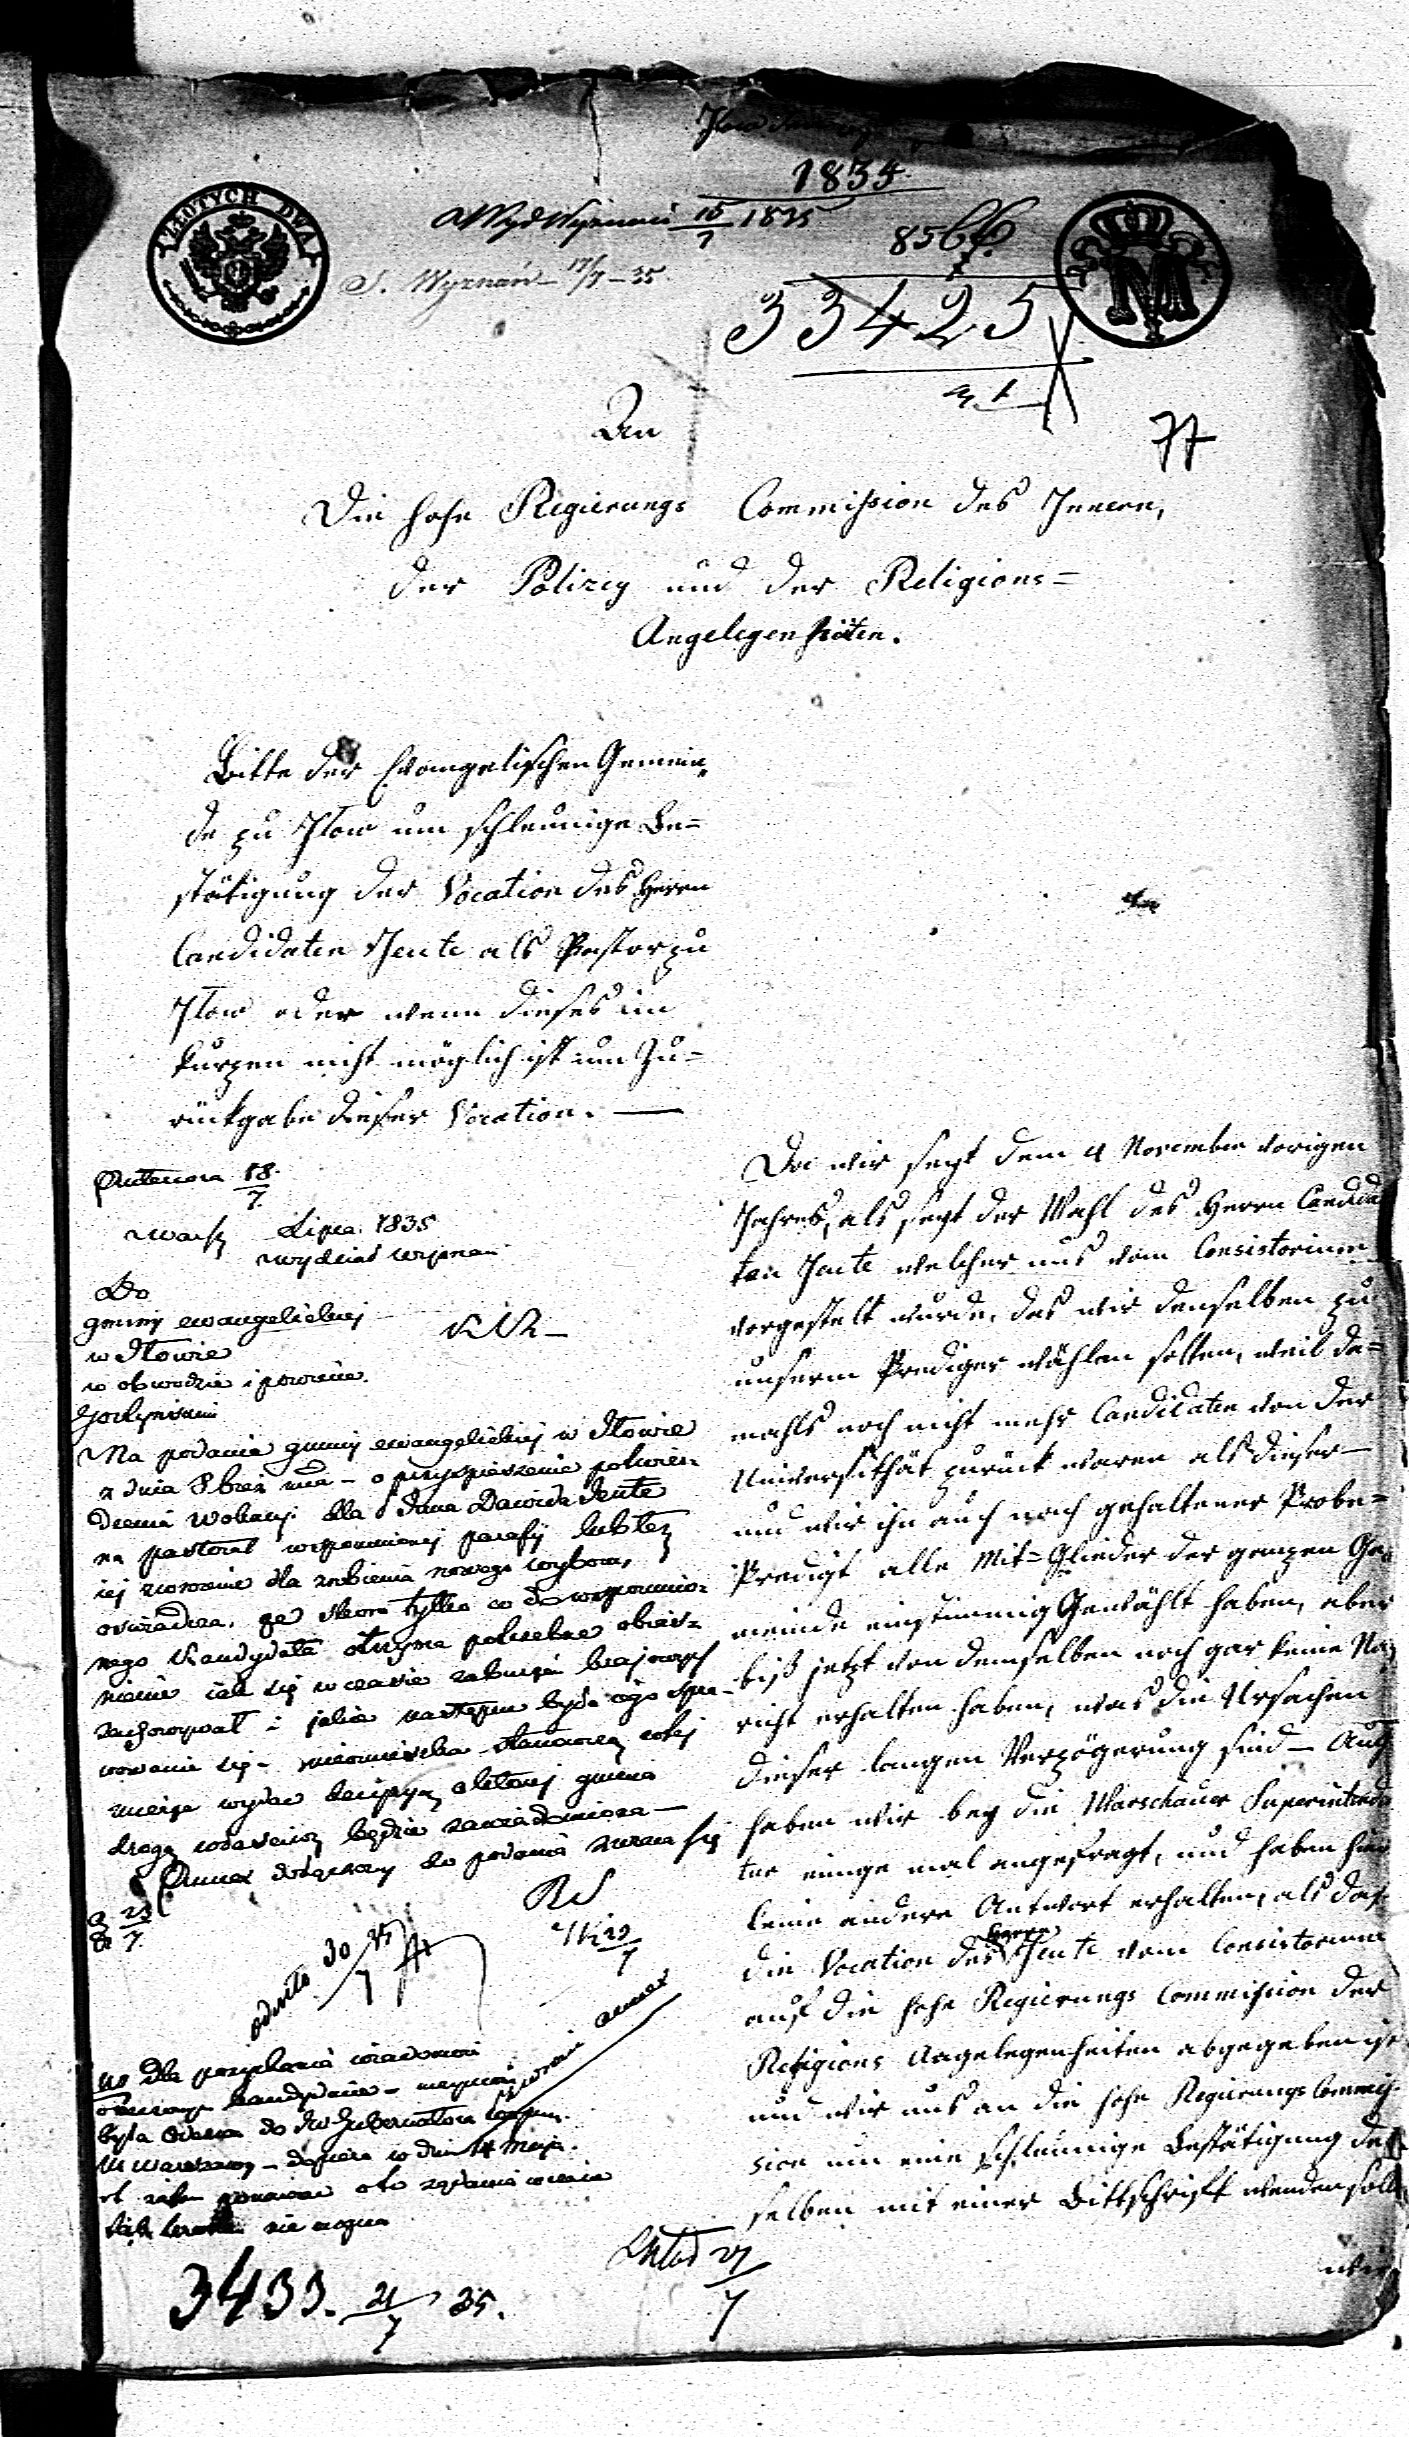 1835
ZŁOTYCH DWA
Wyznań 15/7 1835
S. Wyznań 17/7 – 35
33425
77
An
Die hohe Regierungs Commission des Innern,
der Polizey und der Religions=
Angelegenheiten.
Bitte der Evangelischen Gemein„
de zu Iłow um schleunige Be=
stätigung der Vocation des Herrn
Candidaten Jente als Pastor zu
Iłow oder wenn dieses im
kurzen nicht möglich ist um Zu=
rückgabe dieser Vocation. —
18/7
Lipca 1835
Wydział Wyznań
Do
gminy ewangelickiej
w Iłowie
w obwodzie i powiecie
Gostynińskim
Na podanie gminy ewangelickiej w Iłowie
z dnia 8 b. – o przyspieszenie potwier=
dzenia Wokacyi dla Jana Dawida Jente
na pastora wspomnionej parafii lub też
jej zwrócenie dla zrobienia nowego wyboru,
oświadcza, że skoro tylko co do wspomnio=
nego Kandydata otrzyma potrzebne obiaś=
nienie jak się w czasie zaburzeń krajowych
zachowywał i jakie następnie było jego spra=
wowanie się – nieomieszka stanowczej w tej
mierze wydać decyzyi o której gmina
drogą właściwą będzie zawiadomiona —
Annex dołączony do podania zwraca się
23/7
RS
29/7
odesłło 30/7 35
dnia 14 maja
nie można
3433. 21/7 35.
27/7
Da wir seyt dem 4 November vorigen
Jahres, als seyt der Wahl des Herrn Candida
ten Jente welcher uns vom Consistorium
vorgestelt wurde, das wir denselben zu
unserm Prediger wählen solten, weil da=
mahls noch nicht mehr Candidaten von der
Universithät zurück waren als dieser —
und wir ihn auch nach gehaltener Probe=
Predigt alle Mit=Glieder der ganzen Ge=
meinde einstimmig Gewählt haben, aber
biß jetzt von demselben noch gar keine Na
richt erhalten haben, was die Ursachen
dieser langen Verzögerung sind — Auch
haben wir bey die Warschauer Superintenden
tur einige mal angefragt, und haben hier
keine andere Antwort erhalten, als daß
die Vocation des Herrn Jente vom Consistorium
auf die hohe Regierungs Commission der
Religions Angelegenheiten abgegeben ist
und wir uns an die hohe Regierungs Commis=
sion um eine schleunige Bestätigung der
selben mit einer Bittschrift wenden solln
wir